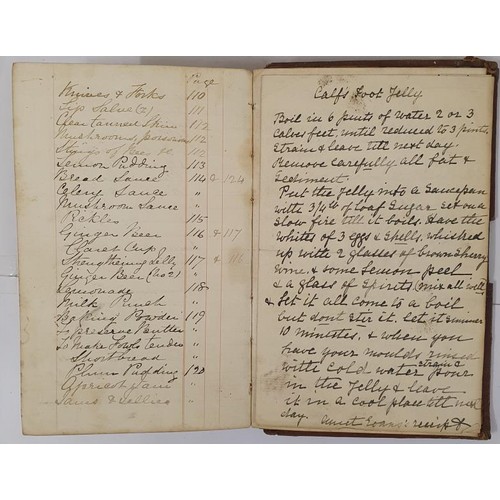 Page
Knives & Forks 110
Lip Salve (2) 111
Clean Tanned Skin 112
Mushrooms, poisonous 112
Stings of Bee &c. 112
Lemon Pudding 113
Bread Sauce 114 & 124
Celery Sauce "
Mushroom Sauce "
Pickles 115
Ginger Beer 116 & 117
Claret Cup "
Strengthening Jelly 117 & 111
Ginger Beer (No 2) "
Lemonade 118
Milk Punch "
Baking Powder 119
To preserve Butter "
To Make Fowls tender "
Shortbread "
Plum Pudding 120
Apricot Jam "
Jams & Jellies "
Calfs Foot Jelly
Boil in 6 pints of water 2 or 3
Calves feet, until reduced to 3 pints.
Strain & leave till next day.
Remove carefully all fat &
sediment.
Put the Jelly into a Saucepan
with 3/4 lb of Loaf Sugar & set on a
slow fire till it boils. Have the
whites of 3 eggs & shells, whisked
up with 2 glasses of brown Sherry
wine, & some Lemon peel
& a glass of Spirits (mix all well)
& Set it all come to a boil
but dont stir it. Let it simmer
10 minutes, & when you
have your moulds rinsed
with cold water strain & pour
in the Jelly & leave
it in a cool place till next
day. Aunt Evans' receipt